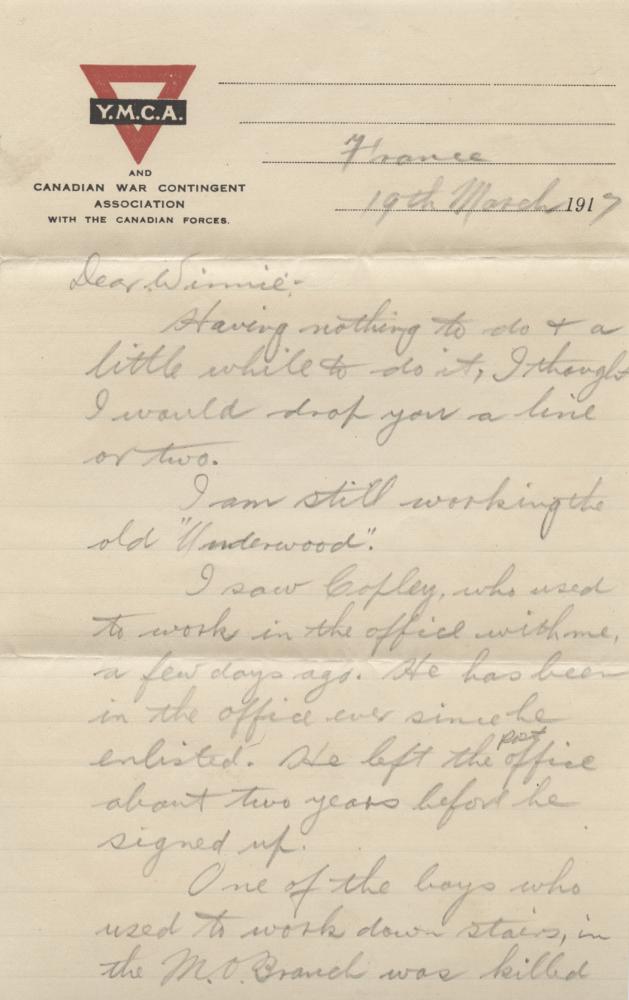 Y.M.C.A.
AND
CANADIAN WAR CONTINGENT
ASSOCIATION
WITH THE CANADIAN FORCES.
France
19th March 1917
Dear Winnie:-
Having nothing to do & a
little while to do it, I thought
I would drop you a line
or two.
I am still working the
old "Underwood".
I saw Copley, who used
to work in the office with me,
a few days ago. He has been
in the office ever since he
enlisted. He left the post office
about two years before he
signed up.
One of the boys who
used to work down stairs, in
the M.O. Branch was killed